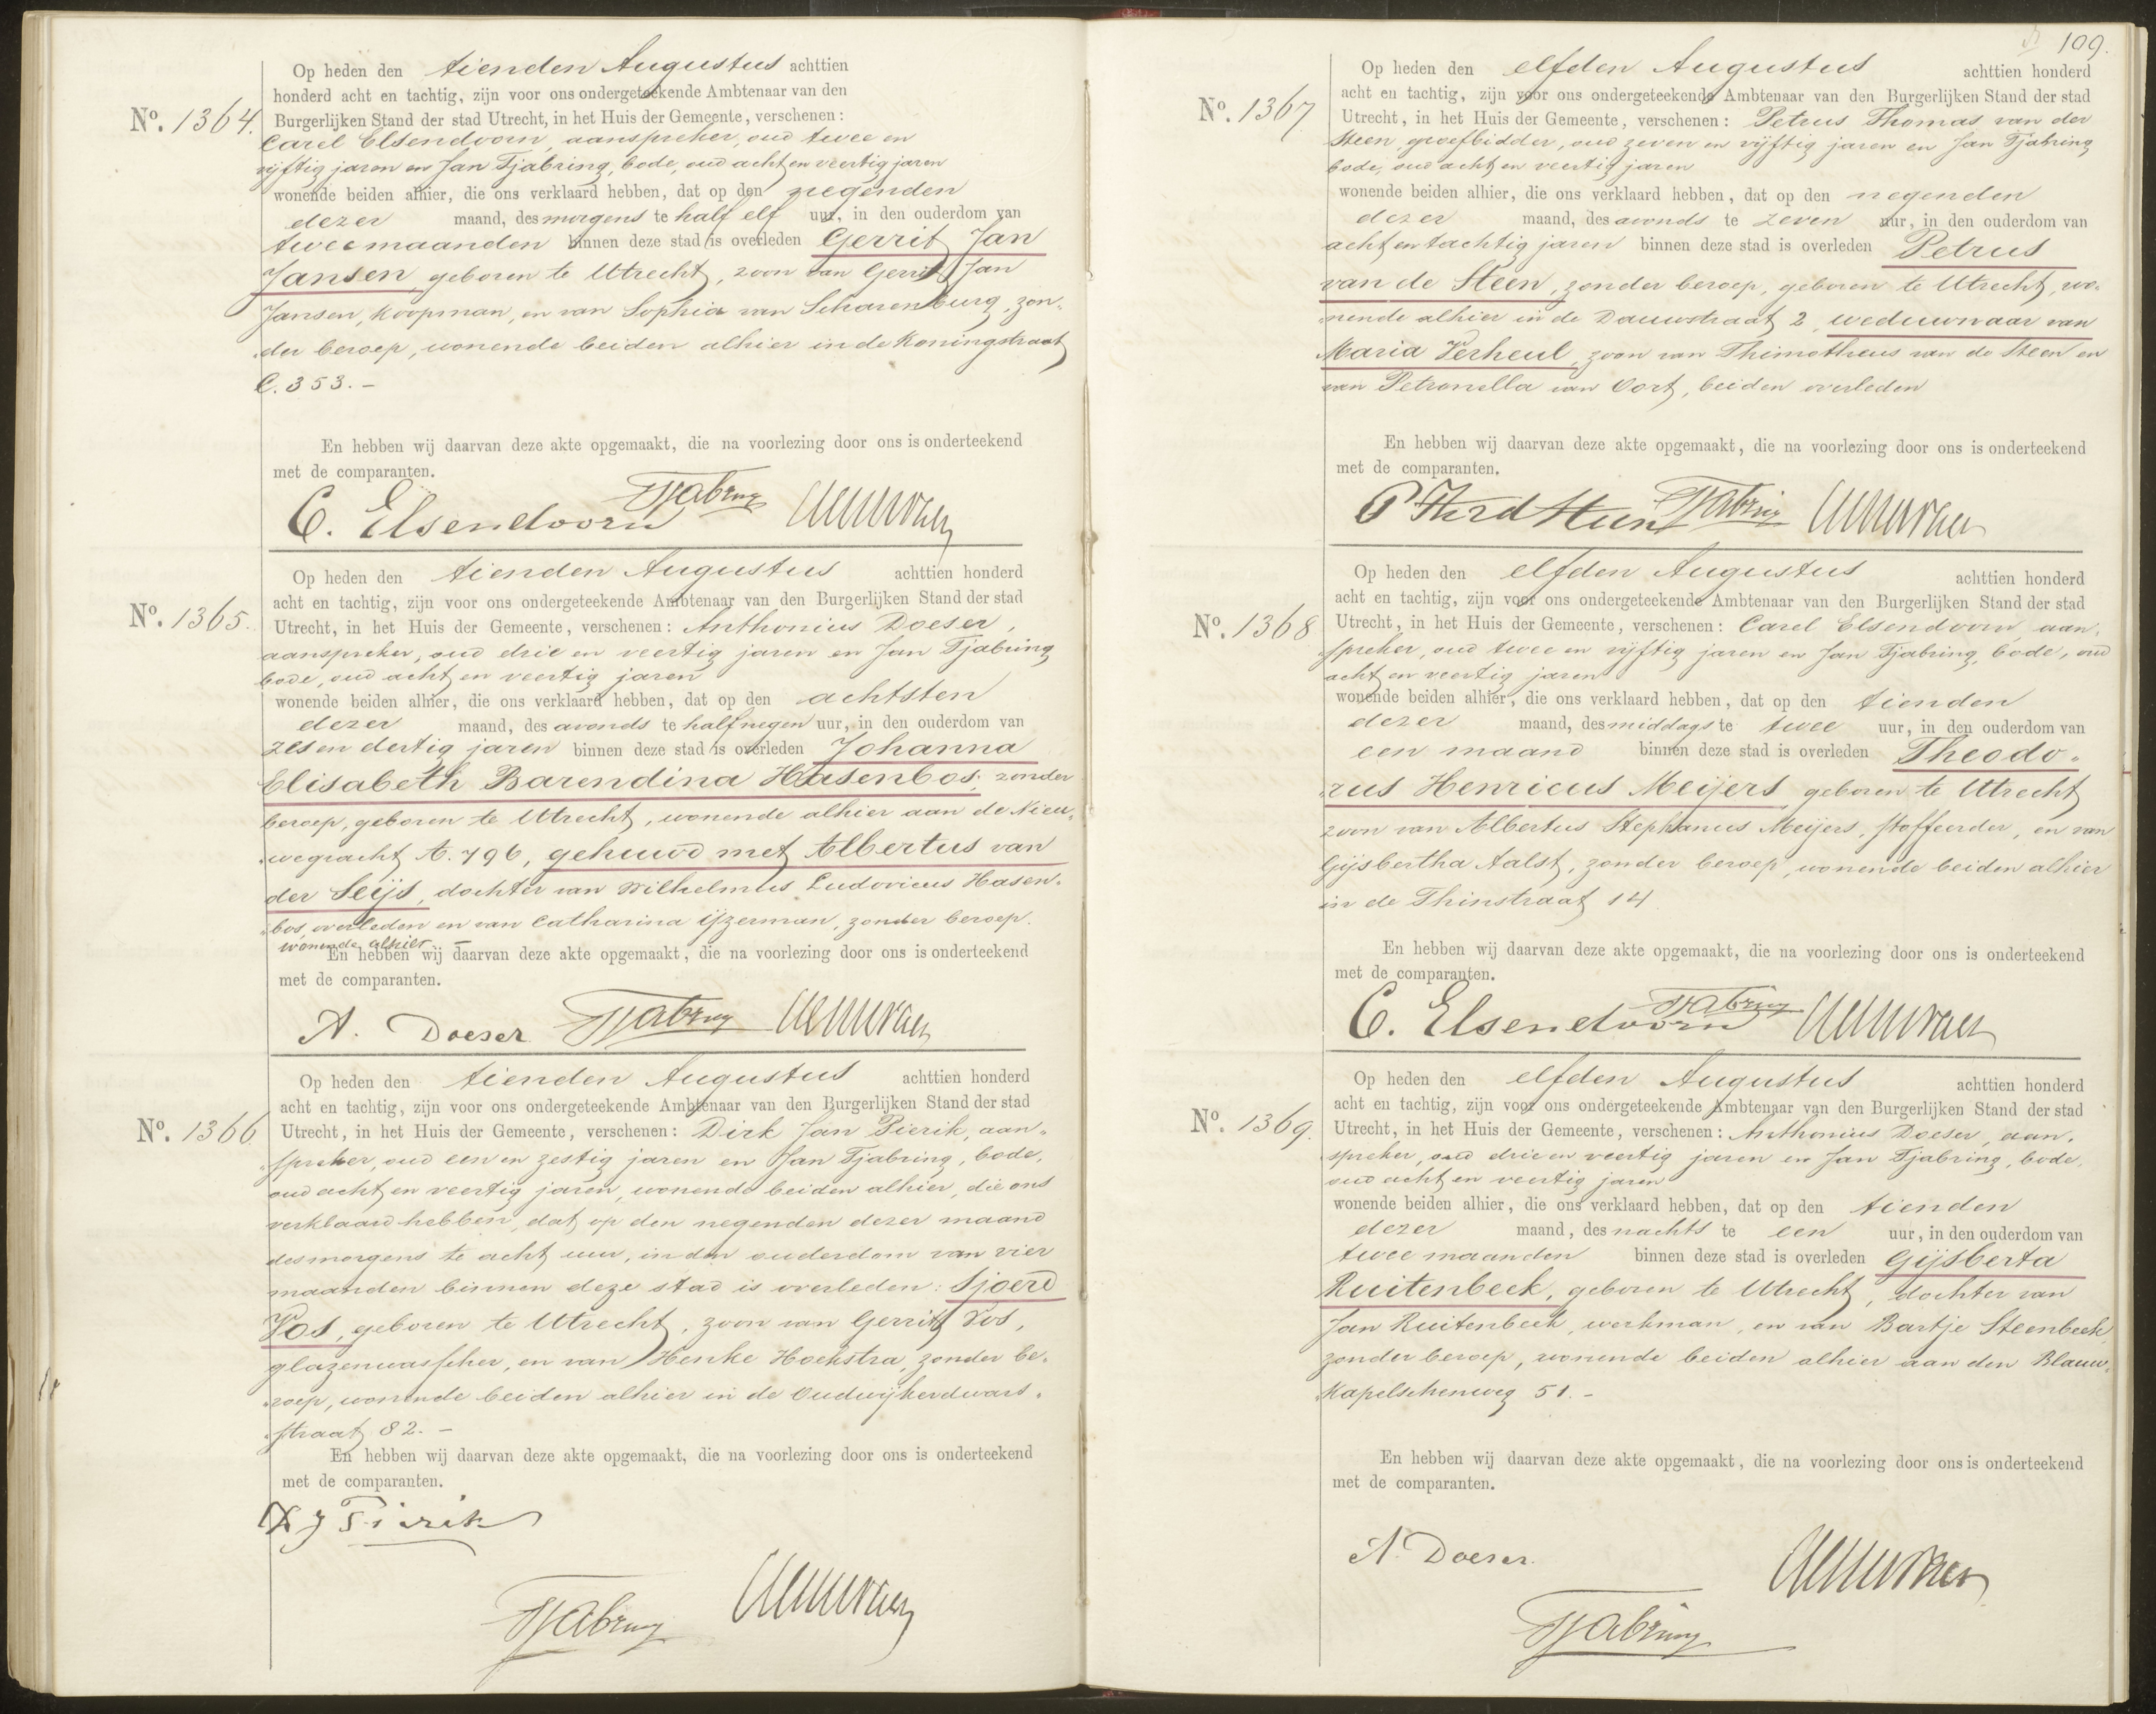 Op heden den tienden Augustus achttien
honderd acht en tachtig, zijn voor ons ondergeteekende Ambtenaar van den
No. 1364. Burgerlijken Stand der stad Utrecht, in het Huis der Gemeente, verschenen:
Carel Elsendoorn, aanspreker, oud twee en
vijftig jaren en Jan Tjabring, bode, oud acht en veertig jaren
wonende beiden alhier, die ons verklaard hebben, dat op den negenden
dezer maand, des morgens te half elf uur, in den ouderdom van
twee maanden binnen deze stad is overleden Gerrit Jan
Jansen, geboren te Utrecht, zoon van Gerrit Jan
Jansen, koopman, en van Sophia van Scharenburg, zon-
der beroep, wonende beiden alhier in de Koningstraat
C. 353. -
En hebben wij daarvan deze akte opgemaakt, die na voorlezing door ons is onderteekend
met de comparanten.
C. Elsendoorn Tjabring
Op heden den tienden Augustus achttien honderd
acht en tachtig, zijn voor ons ondergeteekende Ambtenaar van den Burgerlijken Stand der stad
No. 1365. Utrecht, in het Huis der Gemeente, verschenen: Anthonius Doeser,
aanspreker, oud drie en veertig jaren en Jan Tjabring
bode, oud acht en veertig jaren
wonende beiden alhier, die ons verklaard hebben, dat op den achtsten
dezer maand, des avonds te half negen uur, in den ouderdom van
zes en dertig jaren binnen deze stad is overleden Johanna
Elisabeth Barendina Hasenbos, zonder
beroep, geboren te Utrecht, wonende alhier aan de Nieu-
wegracht A. 796, gehuwd met Albertus van
der Seijs, dochter van Wilhelmus Ludovicus Hasen-
bos, overleden en van Catharina Ijzerman, zonder beroep.
wonende alhier -
En hebben wij daarvan deze akte opgemaakt, die na voorlezing door ons is onderteekend
met de comparanten.
A. Doeser Tjabring
Op heden den tienden Augustus achttien honderd
acht en tachtig, zijn voor ons ondergeteekende Ambtenaar van den Burgerlijken Stand der stad
No. 1366 Utrecht, in het Huis der Gemeente, verschenen: Dirk Jan Pierik, aan-
spreker, oud een en zestig jaren en Jan Tjabring, bode,
oud acht en veertig jaren, wonende beiden alhier, die ons
verklaard hebben, dat op den negenden dezer maand
des morgens te acht uur, in den ouderdom van vier
maanden binnen deze stad is overleden: Sjoerd
Vos, geboren te Utrecht, zoon van Gerrit Vos,
glazenwasscher, en van Henke Hoekstra, zonder be-
roep, wonende beiden alhier in de Oudwijkerdwars-
straat 82. -
En hebben wij daarvan deze akte opgemaakt, die na voorlezing door ons is onderteekend
met de comparanten.
D J Pierik
Tjabring
109.
Op heden den elfden Augustus achttien honderd
acht en tachtig, zijn voor ons ondergeteekende Ambtenaar van den Burgerlijken Stand der stad
No. 1367. Utrecht, in het Huis der Gemeente, verschenen: Petrus Thomas van der
Steen, groefbidder, oud zeven en vijftig jaren en Jan Tjabring
bode, oud acht en veertig jaren
wonende beiden alhier, die ons verklaard hebben, dat op den negenden
dezer maand, des avonds te zeven uur, in den ouderdom van
acht en tachtig jaren binnen deze stad is overleden Petrus
van de Steen, zonder beroep, geboren te Utrecht, wo-
nende alhier in de Dauwstraat 2, weduwnaar van
Maria Verheul, zoon van Thimotheus van de Steen en
van Petronella van Oort, beiden overleden
En hebben wij daarvan deze akte opgemaakt, die na voorlezing door ons is onderteekend
met de comparanten.
P Th vd Steen Tjabring
Op heden den elfden Augustus achttien honderd
acht en tachtig, zijn voor ons ondergeteekende Ambtenaar van den Burgerlijken Stand der stad
No. 1368 Utrecht, in het Huis der Gemeente, verschenen: Carel Elsendoorn, aan-
spreker, oud twee en vijftig jaren en Jan Tjabring, bode, oud
acht en veertig jaren
wonende beiden alhier, die ons verklaard hebben, dat op den tienden
dezer maand, des middags te twee uur, in den ouderdom van
een maand binnen deze stad is overleden Theodo-
rus Henricus Meijers, geboren te Utrecht
zoon van Albertus Stephanus Meijers, stoffeerder, en van
Gijsbertha Aalst, zonder beroep, wonende beiden alhier
in de Thinstraat 14.
En hebben wij daarvan deze akte opgemaakt, die na voorlezing door ons is onderteekend
met de comparanten.
C. Elsendoorn Tjabring
Op heden den elfden Augustus achttien honderd
acht en tachtig, zijn voor ons ondergeteekende Ambtenaar van den Burgerlijken Stand der stad
No. 1369. Utrecht, in het Huis der Gemeente, verschenen: Anthonius Doeser, aan-
spreker, oud drie en veertig jaren en Jan Tjabring, bode,
oud acht en veertig jaren
wonende beiden alhier, die ons verklaard hebben, dat op den tienden
dezer maand, des nachts te een uur, in den ouderdom van
twee maanden binnen deze stad is overleden Gijsberta
Ruitenbeek, geboren te Utrecht, dochter van
Jan Ruitenbeek, werkman, en van Bartje Steenbeek
zonder beroep, wonende beiden alhier aan den Blauw-
kapelschenweg 51. -
En hebben wij daarvan deze akte opgemaakt, die na voorlezing door ons is onderteekend
met de comparanten.
A. Doeser
Tjabring